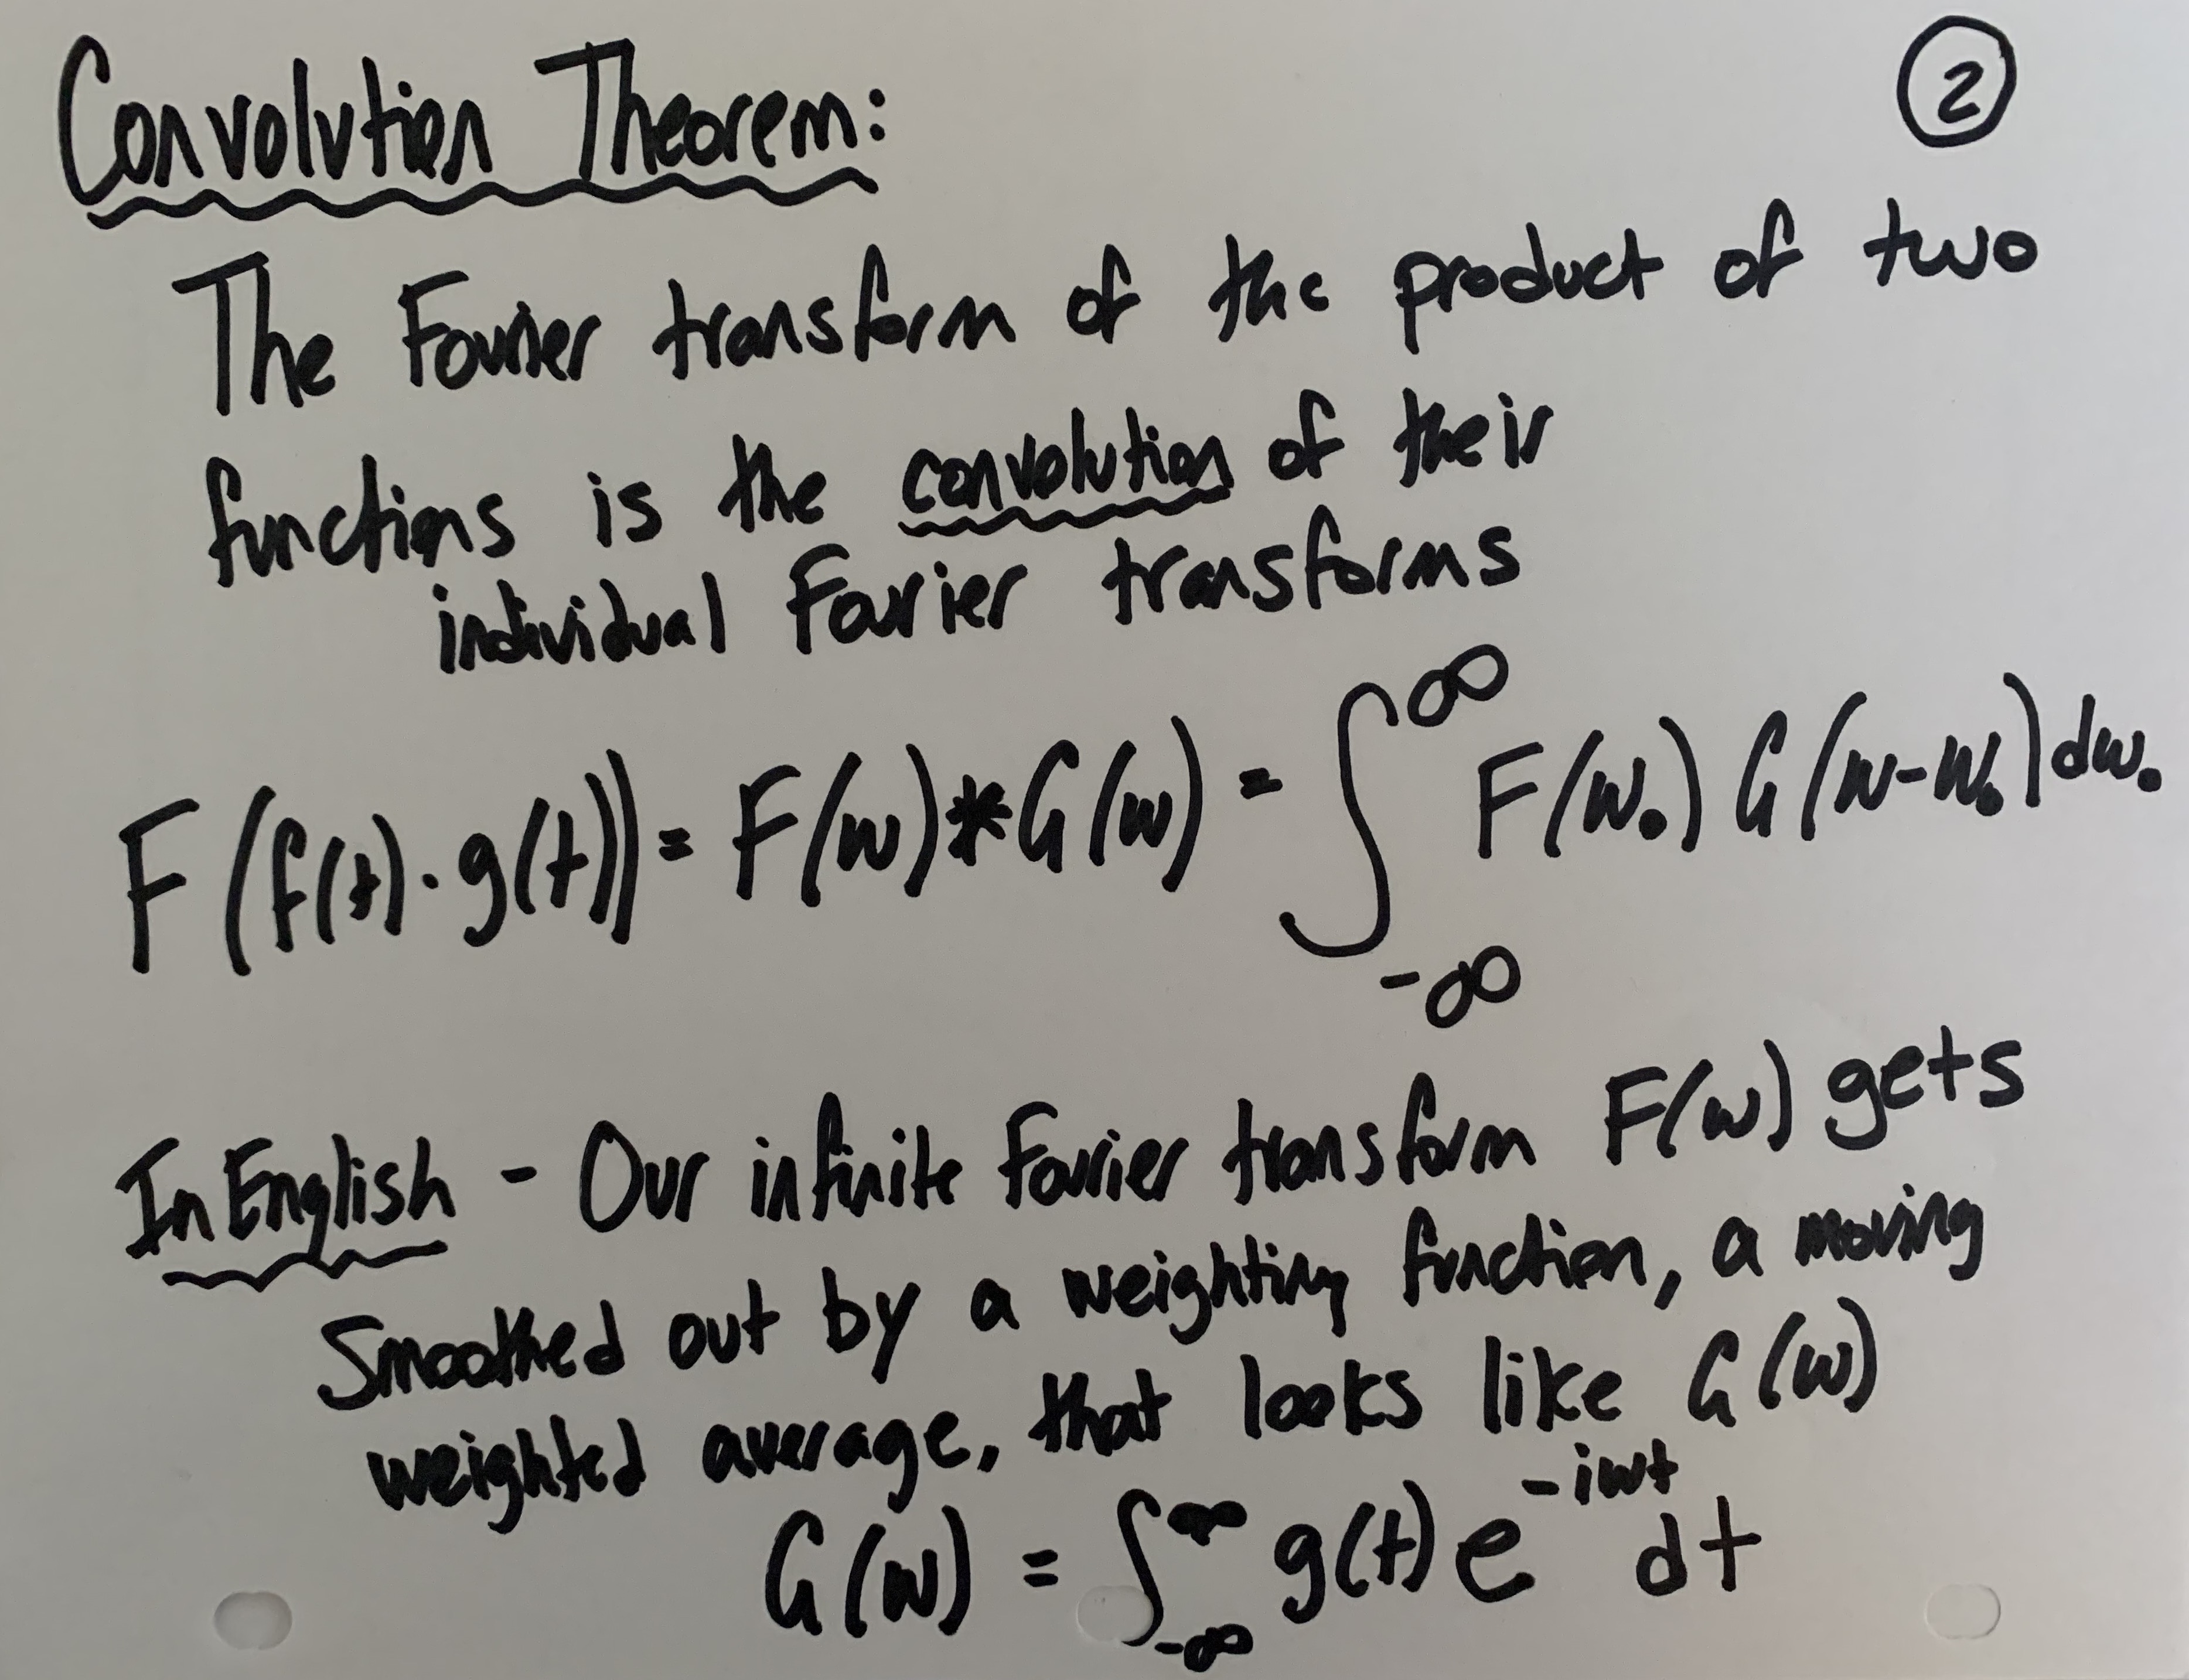 Convolution Theorem:
②
The Fourier transform of the product of two
functions is the convolution of their
individual Fourier transforms
F(f(t)·g(t)) = F(w)*G(w) = ∫_{-∞}^{∞} F(w₀) G(w-w₀) dw₀
In English - Our infinite Fourier transform F(w) gets
Smoothed out by a weighting function, a moving
weighted average, that looks like G(w)
G(w) = ∫_{-∞}^{∞} g(t) e^{-iwt} dt